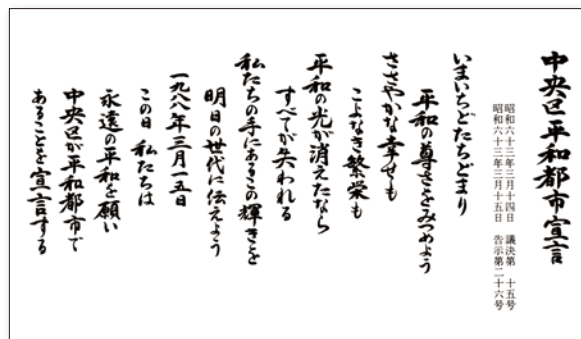 中央区平和都市宣言
昭和六十三年三月十四日 議決第 十五号
昭和六十三年三月十五日 告示第二十六号
いまいちどたちどまり
平和の尊さをみつめよう
ささやかな幸せも
こよなき繁栄も
平和の光が消えたなら
すべてが失われる
私たちの手にあるこの輝きを
明日の世代に伝えよう
一九八八年三月一五日
この日 私たちは
永遠の平和を願い
中央区が平和都市で
あることを宣言する